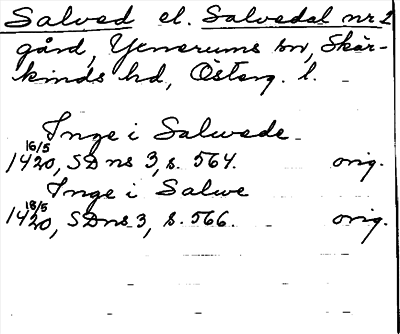 Salved el. Salvedal nr 2
gård, Yxnerums sn, Skär-
kinds hd, Österg. l.
Inge i Salwede
16/5 1420, SD ns 3, s. 564. orig.
Inge i Salwe
18/5 1420, SD ns 3, s. 566. orig.